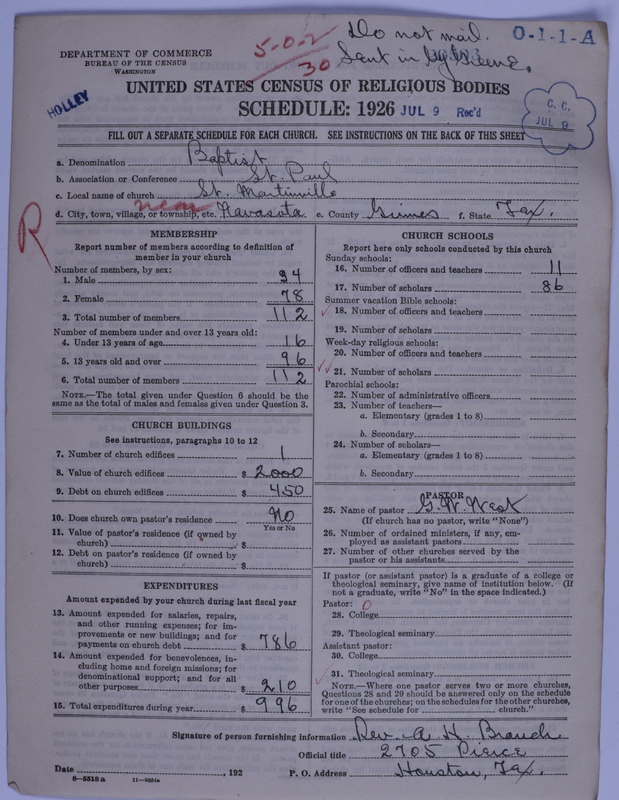 Do not mail.
O-1-1-A
5-0-2
30
Sent in by
DEPARTMENT OF COMMERCE
BUREAU OF THE CENSUS
WASHINGTON
UNITED STATES CENSUS OF RELIGIOUS BODIES
HOLLEY
SCHEDULE: 1926 JUL 9 Rec'd
C. C.
JUL 9
FILL OUT A SEPARATE SCHEDULE FOR EACH CHURCH. SEE INSTRUCTIONS ON THE BACK OF THIS SHEET
a. Denomination Baptist
b. Association or Conference St. Paul
c. Local name of church St. Martinville
near
d. City, town, village, or township, etc. Navasota e. County Grimes f. State Tex.
R
MEMBERSHIP
Report number of members according to definition of
member in your church
Number of members, by sex:
1. Male 34
2. Female 78
3. Total number of members 112
Number of members under and over 13 years old:
4. Under 13 years of age 16
5. 13 years old and over 96
6. Total number of members 112
NOTE.—The total given under Question 6 should be the
same as the total of males and females given under Question 3.
CHURCH BUILDINGS
See instructions, paragraphs 10 to 12
7. Number of church edifices 1
8. Value of church edifices $ 2000
9. Debt on church edifices $ 450
10. Does church own pastor's residence No
Yes or No
11. Value of pastor's residence (if owned by
church) $
12. Debt on pastor's residence (if owned by
church) $
EXPENDITURES
Amount expended by your church during last fiscal year
13. Amount expended for salaries, repairs,
and other running expenses; for im-
provements or new buildings; and for
payments on church debt $ 786
14. Amount expended for benevolences, in-
cluding home and foreign missions; for
denominational support; and for all
other purposes $ 210
15. Total expenditures during year $ 996
CHURCH SCHOOLS
Report here only schools conducted by this church
Sunday schools:
16. Number of officers and teachers 11
17. Number of scholars 86
Summer vacation Bible schools:
18. Number of officers and teachers
19. Number of scholars
Week-day religious schools:
20. Number of officers and teachers
21. Number of scholars
Parochial schools:
22. Number of administrative officers
23. Number of teachers—
a. Elementary (grades 1 to 8)
b. Secondary
24. Number of scholars—
a. Elementary (grades 1 to 8)
b. Secondary
PASTOR
25. Name of pastor G. W. West
(If church has no pastor, write "None")
26. Number of ordained ministers, if any, em-
ployed as assistant pastors
27. Number of other churches served by the
pastor or his assistants
If pastor (or assistant pastor) is a graduate of a college or
theological seminary, give name of institution below. (If
not a graduate, write "No" in the space indicated.)
Pastor: 0
28. College
29. Theological seminary
Assistant pastor:
30. College
31. Theological seminary
NOTE.—Where one pastor serves two or more churches,
Questions 28 and 29 should be answered only on the schedule
for one of the churches; on the schedules for the other churches,
write "See schedule for church."
Signature of person furnishing information Rev. A H. Branch
Official title 2705 Pierce
Date , 192 P. O. Address Houston, Tex.
8—5518a 11—9034a